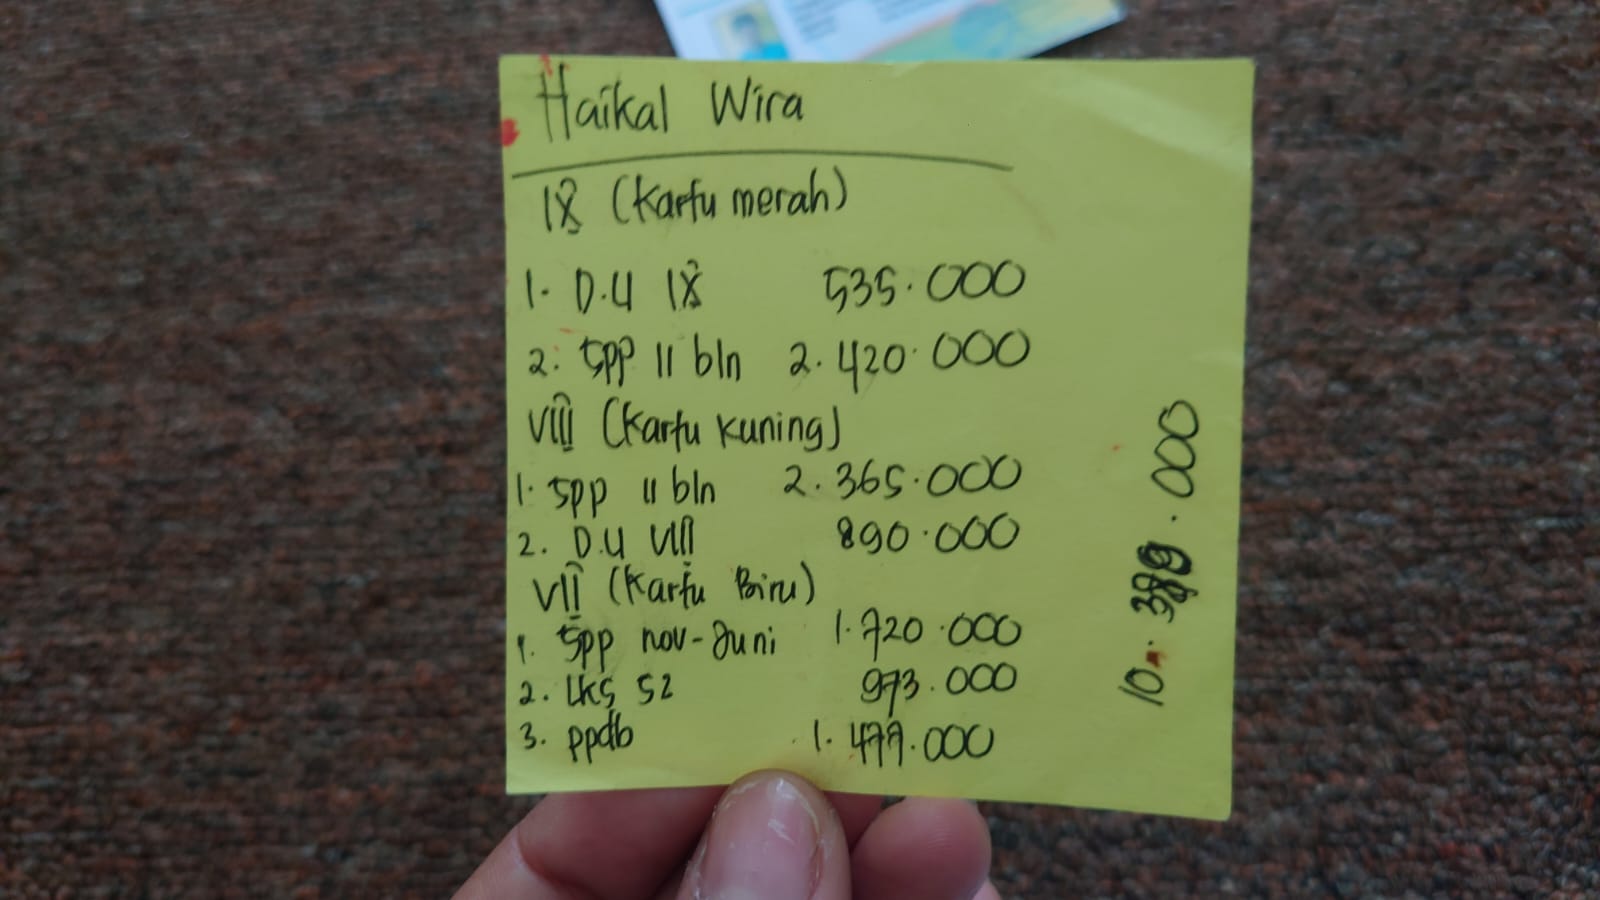 Haikal Wira
IX (Kartu merah)
1. D.U IX 535.000
2. Spp 11 bln 2.420.000
VIII (Kartu Kuning)
1. Spp 11 bln 2.365.000
2. D.U VIII 890.000
VII (Kartu Biru)
1. Spp nov-Juni 1.720.000
2. LKS S2 973.000
3. ppdb